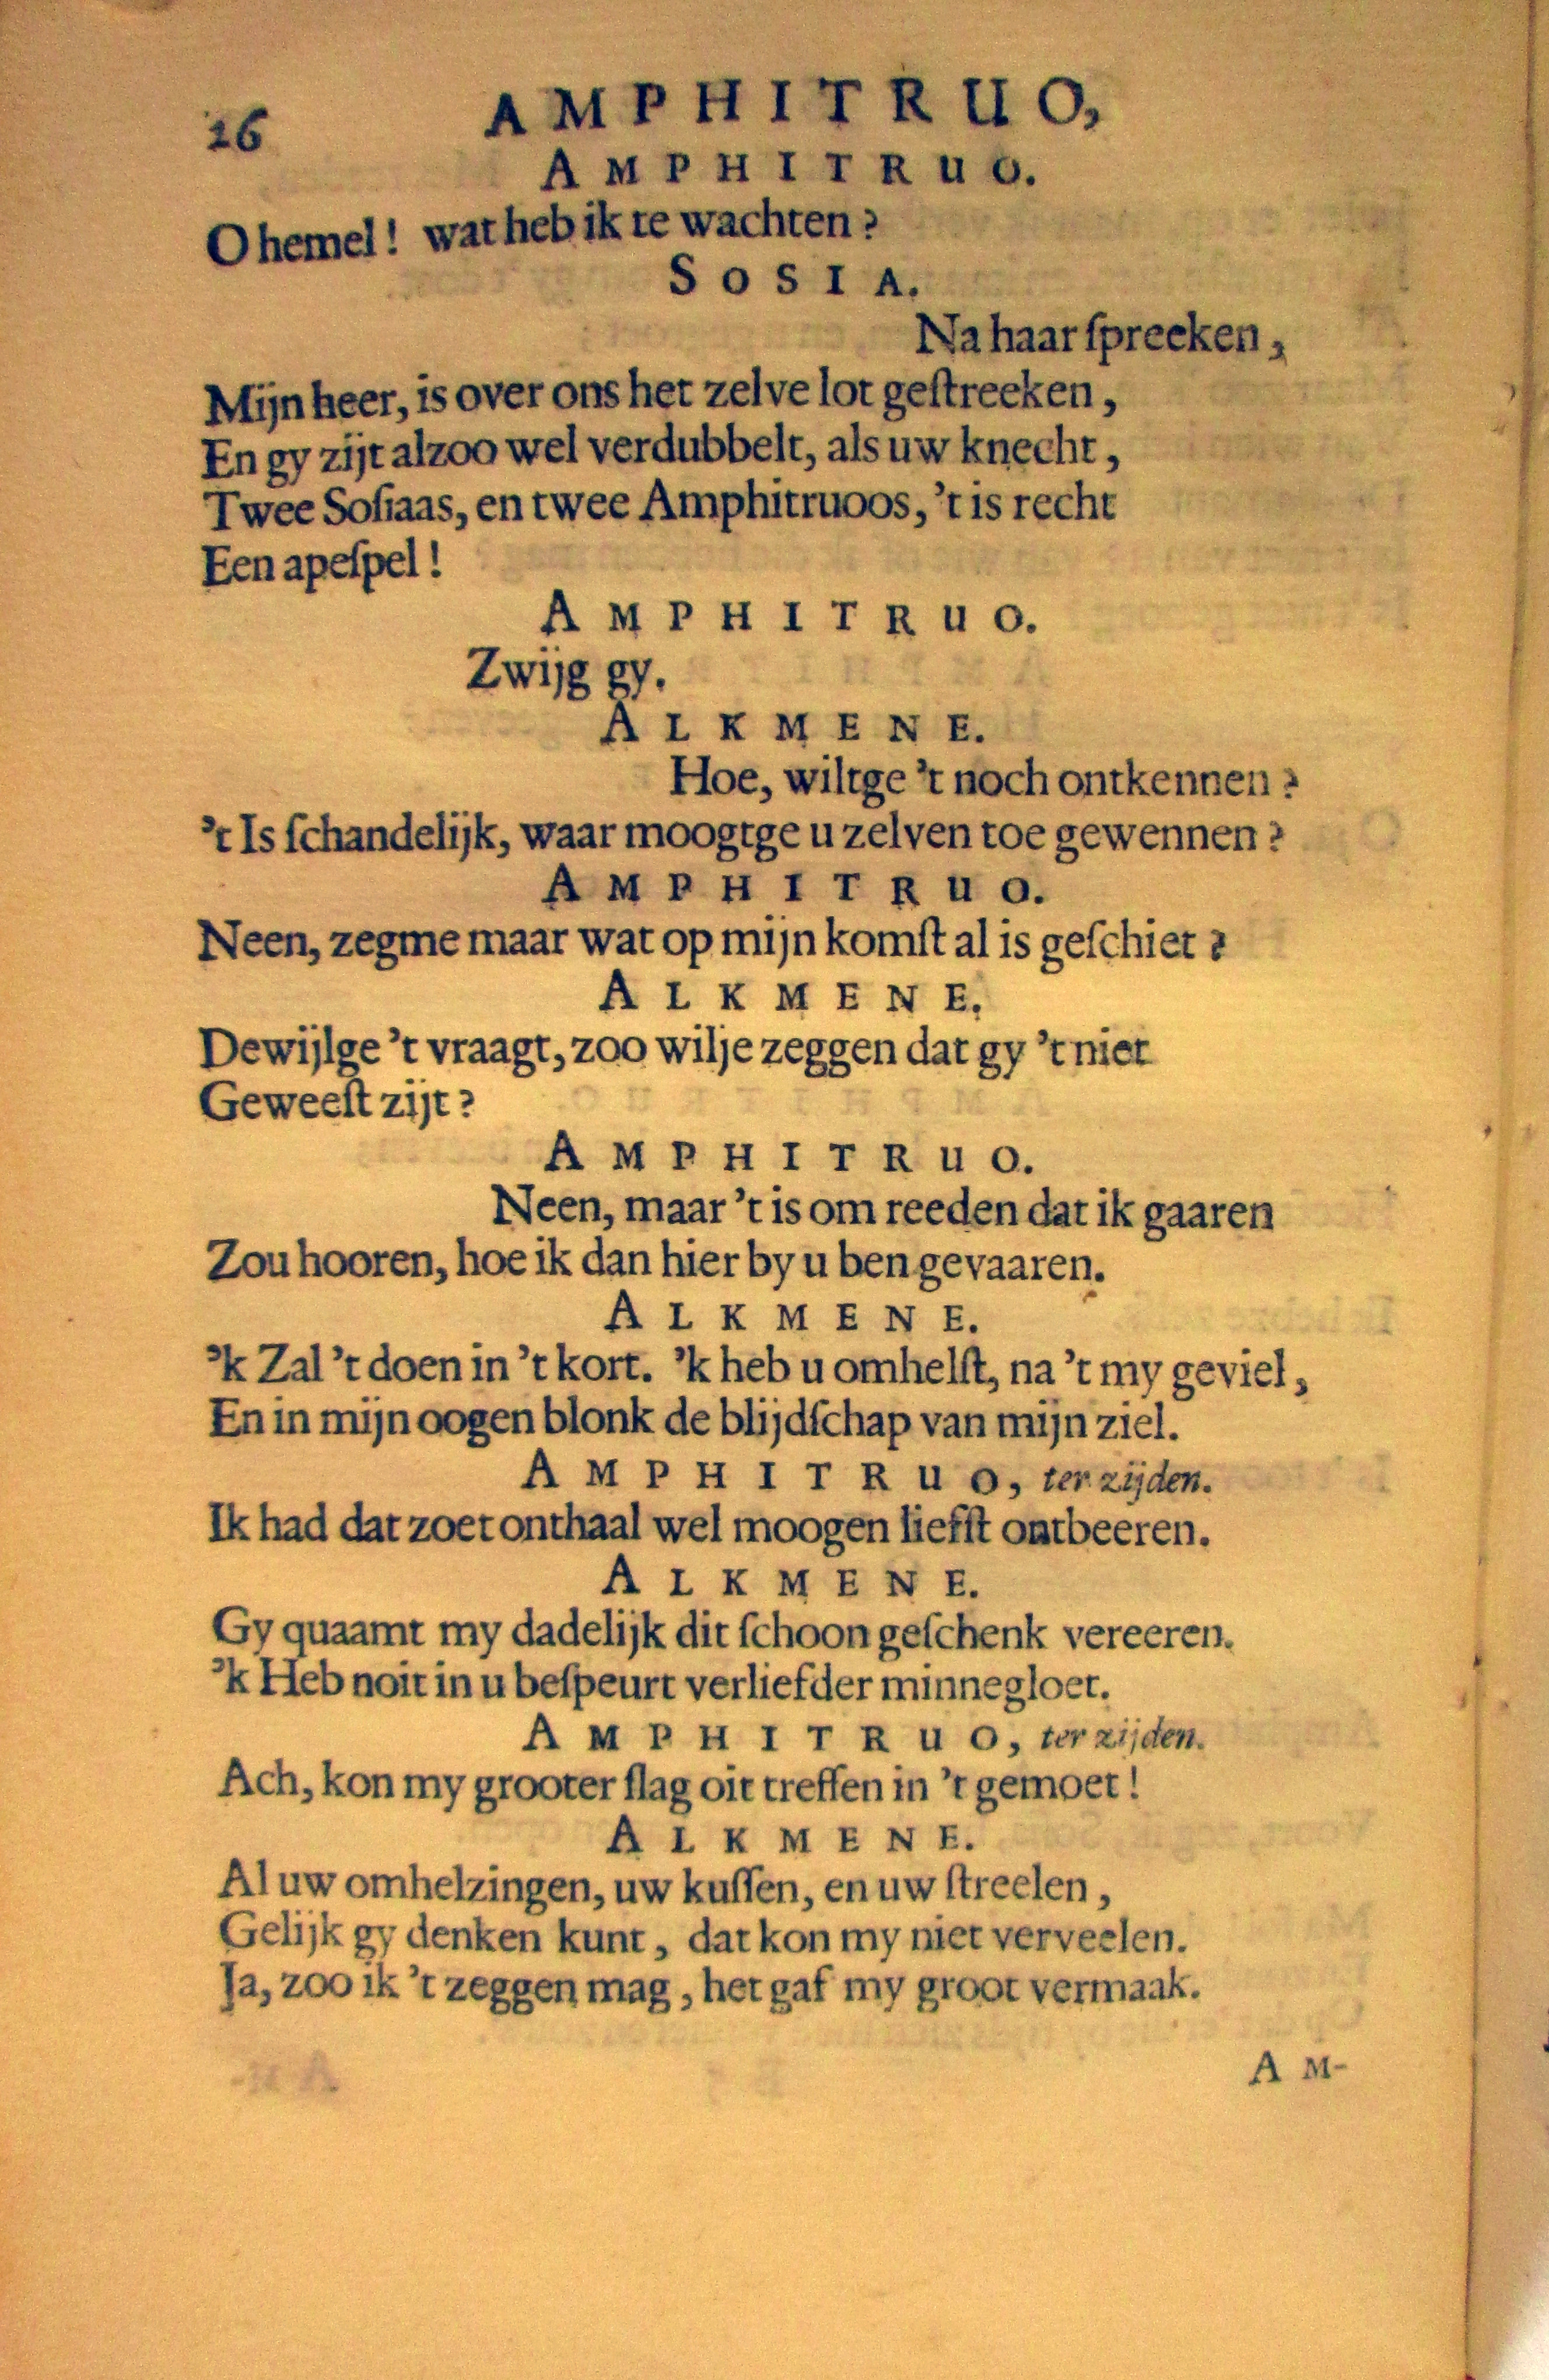 26 AMPHITRUO,
AMPHITRUO.
O hemel! wat heb ik te wachten?
SOSIA.
Na haar ſpreeken,
Mijn heer, is over ons het zelve lot geſtreeken,
En gy zijt alzoo wel verdubbelt, als uw knecht,
Twee Soſiaas, en twee Amphitruoos, 't is recht
Een apeſpel!
AMPHITRUO.
Zwijg gy.
ALKMENE.
Hoe, wiltge 't noch ontkennen?
't Is ſchandelijk, waar moogtge u zelven toe gewennen?
AMPHITRUO.
Neen, zegme maar wat op mijn komſt al is geſchiet?
ALKMENE.
Dewijlge 't vraagt, zoo wilje zeggen dat gy 't niet
Geweeſt zijt?
AMPHITRUO.
Neen, maar 't is om reeden dat ik gaaren
Zou hooren, hoe ik dan hier by u ben gevaaren.
ALKMENE.
'k Zal 't doen in 't kort. 'k heb u omhelſt, na 't my geviel,
En in mijn oogen blonk de blijdſchap van mijn ziel.
AMPHITRUO, ter zijden.
Ik had dat zoet onthaal wel moogen liefſt ontbeeren.
ALKMENE.
Gy quaamt my dadelijk dit ſchoon geſchenk vereeren.
'k Heb noit in u beſpeurt verliefder minnegloet.
AMPHITRUO, ter zijden.
Ach, kon my grooter ſlag oit treffen in 't gemoet!
ALKMENE.
Al uw omhelzingen, uw kuſſen, en uw ſtreelen,
Gelijk gy denken kunt, dat kon my niet verveelen.
Ja, zoo ik 't zeggen mag, het gaf my groot vermaak.
AM-